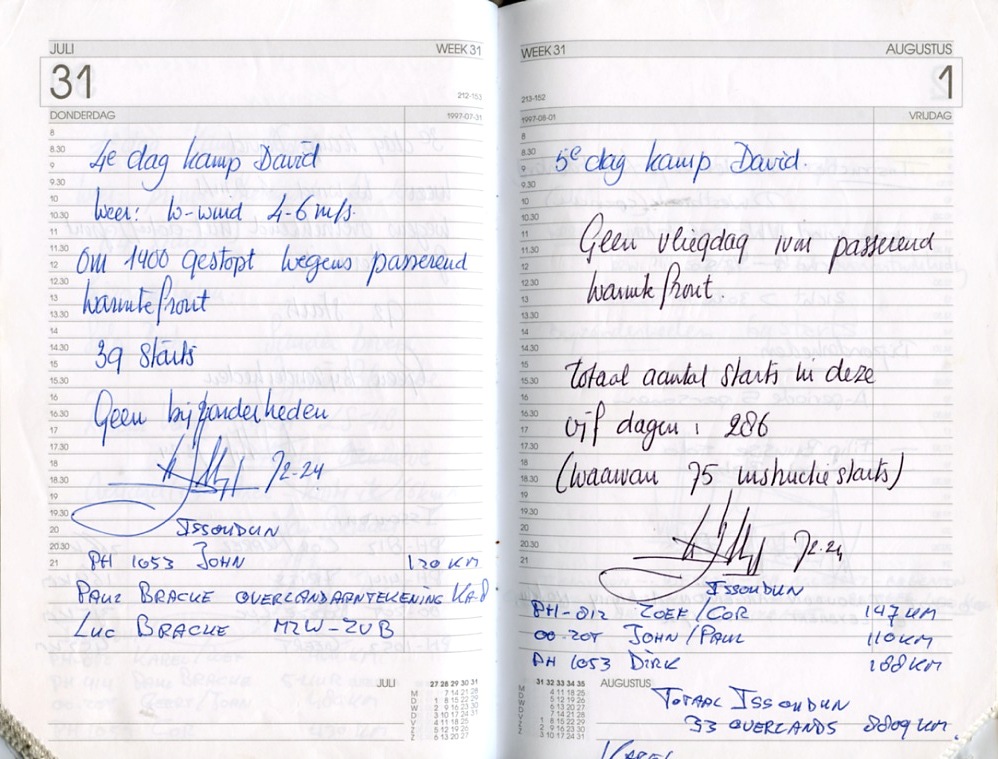 JULI WEEK 31
31
212-153
DONDERDAG 1997-07-31
8
8.30
9
9.30
10
10.30
11
11.30
12
12.30
13
13.30
14
14.30
15
15.30
16
16.30
17
17.30
18
18.30
19
19.30
20
20.30
21
4e dag kamp David
Weer: W-wind 4-6 m/s.
Om 1400 gestopt wegens passerend
warmtefront
39 starts
Geen bijzonderheden
72-24
ISSOUDUN
PH 1053 JOHN 120 KM
PAUL BRACKE OVERLANDAANTEKENING KA8
LUC BRACKE MZW-ZVB
JULI
27 28 29 30 31
M 7 14 21 28
D 1 8 15 22 29
W 2 9 16 23 30
D 3 10 17 24 31
V 4 11 18 25
Z 5 12 19 26
Z 6 13 20 27
WEEK 31 AUGUSTUS
1
213-152
1997-08-01 VRIJDAG
8
8.30
9
9.30
10
10.30
11
11.30
12
12.30
13
13.30
14
14.30
15
15.30
16
16.30
17
17.30
18
18.30
19
19.30
20
20.30
21
5e dag kamp David.
Geen vliegdag ivm passerend
warmtefront.
Totaal aantal starts in deze
vijf dagen: 286
(waarvan 75 instructiestarts)
72-24
ISSOUDUN
PH-012 ZOEF/COR 147 KM
00-ZOT JOHN/PAUL 110 KM
PH 1053 DIRK 188 KM
AUGUSTUS
31 32 33 34 35
M 4 11 18 25
D 5 12 19 26
W 6 13 20 27
D 7 14 21 28
V 1 8 15 22 29
Z 2 9 16 23 30
Z 3 10 17 24 31
TOTAAL ISSOUDUN
33 OVERLANDS 8809 KM.
KAREL